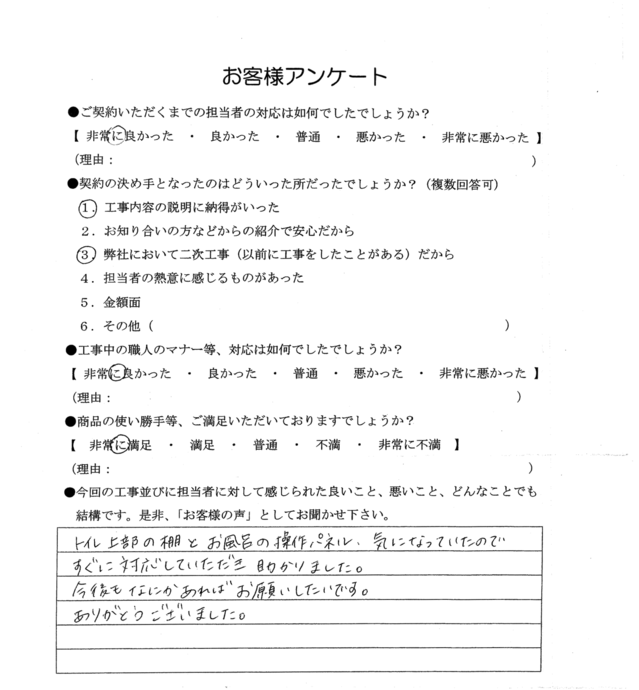 お客様アンケート
●ご契約いただくまでの担当者の対応は如何でしたでしょうか?
【 非常に良かった ・ 良かった ・ 普通 ・ 悪かった ・ 非常に悪かった 】
(理由: )
●契約の決め手となったのはどういった所だったでしょうか?(複数回答可)
1. 工事内容の説明に納得がいった
2. お知り合いの方などからの紹介で安心だから
3. 弊社において二次工事(以前に工事をしたことがある)だから
4. 担当者の熱意に感じるものがあった
5. 金額面
6. その他( )
●工事中の職人のマナー等、対応は如何でしたでしょうか?
【 非常に良かった ・ 良かった ・ 普通 ・ 悪かった ・ 非常に悪かった 】
(理由: )
●商品の使い勝手等、ご満足いただいておりますでしょうか?
【 非常に満足 ・ 満足 ・ 普通 ・ 不満 ・ 非常に不満 】
(理由: )
●今回の工事並びに担当者に対して感じられた良いこと、悪いこと、どんなことでも
結構です。是非、「お客様の声」としてお聞かせ下さい。
トイレ上部の棚とお風呂の操作パネル、気になっていたので
すぐに対応していただき助かりました。
今後もなにかあればお願いしたいです。
ありがとうございました。